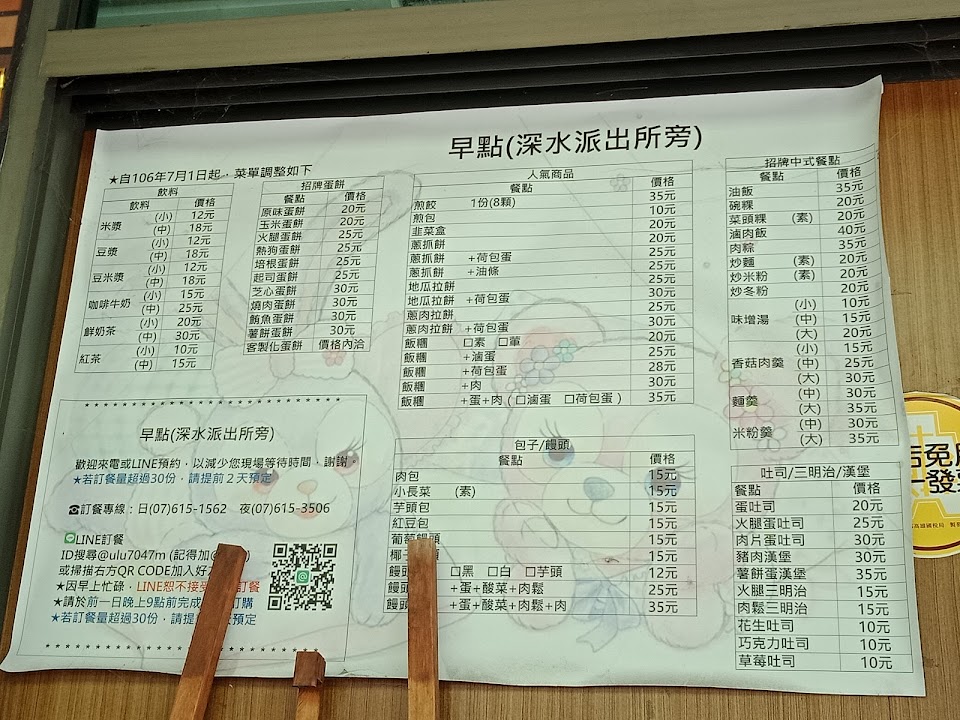 早點(深水派出所旁)
★自106年7月1日起，菜單調整如下
飲料
飲料 價格
米漿 (小) 12元
(中) 18元
豆漿 (小) 12元
(中) 18元
豆米漿 (小) 12元
(中) 18元
咖啡牛奶 (小) 15元
(中) 25元
鮮奶茶 (小) 20元
(中) 30元
紅茶 (小) 10元
(中) 15元
招牌蛋餅
餐點 價格
原味蛋餅 20元
玉米蛋餅 20元
火腿蛋餅 25元
熱狗蛋餅 25元
培根蛋餅 25元
起司蛋餅 25元
芝心蛋餅 30元
燒肉蛋餅 30元
鮪魚蛋餅 30元
薯餅蛋餅 30元
客製化蛋餅 價格內洽
人氣商品
餐點 價格
煎餃 1份(8顆) 35元
煎包 10元
韭菜盒 20元
蔥抓餅 20元
蔥抓餅 +荷包蛋 25元
蔥抓餅 +油條 25元
地瓜拉餅 25元
地瓜拉餅 +荷包蛋 30元
蔥肉拉餅 25元
蔥肉拉餅 +荷包蛋 30元
飯糰 □素 □葷 20元
飯糰 +滷蛋 25元
飯糰 +荷包蛋 28元
飯糰 +肉 30元
飯糰 +蛋+肉 (□滷蛋 □荷包蛋) 35元
招牌中式餐點
餐點 價格
油飯 35元
碗粿 20元
菜頭粿 (素) 20元
滷肉飯 40元
肉粽 35元
炒麵 (素) 20元
炒米粉 (素) 20元
炒冬粉 20元
味增湯 (小) 10元
(中) 15元
(大) 20元
香菇肉羹 (小) 15元
(中) 25元
(大) 30元
麵羹 (中) 30元
(大) 35元
米粉羹 (中) 30元
(大) 35元
早點(深水派出所旁)
歡迎來電或LINE預約，以減少您現場等待時間，謝謝。
★若訂餐量超過30份，請提前２天預定
☎訂餐專線：日(07)615-1562 夜(07)615-3506
LINE訂餐
ID搜尋@ulu7047m (記得加@
或掃描右方QR CODE加入好
★因早上忙碌，LINE恕不接受 訂餐
★請於前一日晚上9點前完成 訂購
★若訂餐量超過30份，請提 天預定
包子/饅頭
餐點 價格
肉包 15元
小長菜 (素) 15元
芋頭包 15元
紅豆包 15元
葡萄饅頭 15元
椰子 頭 15元
饅頭 □黑 □白 □芋頭 12元
饅頭 +蛋+酸菜+肉鬆 25元
饅頭 +蛋+酸菜+肉鬆+肉 35元
吐司/三明治/漢堡
餐點 價格
蛋吐司 20元
火腿蛋吐司 25元
肉片蛋吐司 30元
豬肉漢堡 30元
薯餅蛋漢堡 35元
火腿三明治 15元
肉鬆三明治 15元
花生吐司 10元
巧克力吐司 10元
草莓吐司 10元
免
發